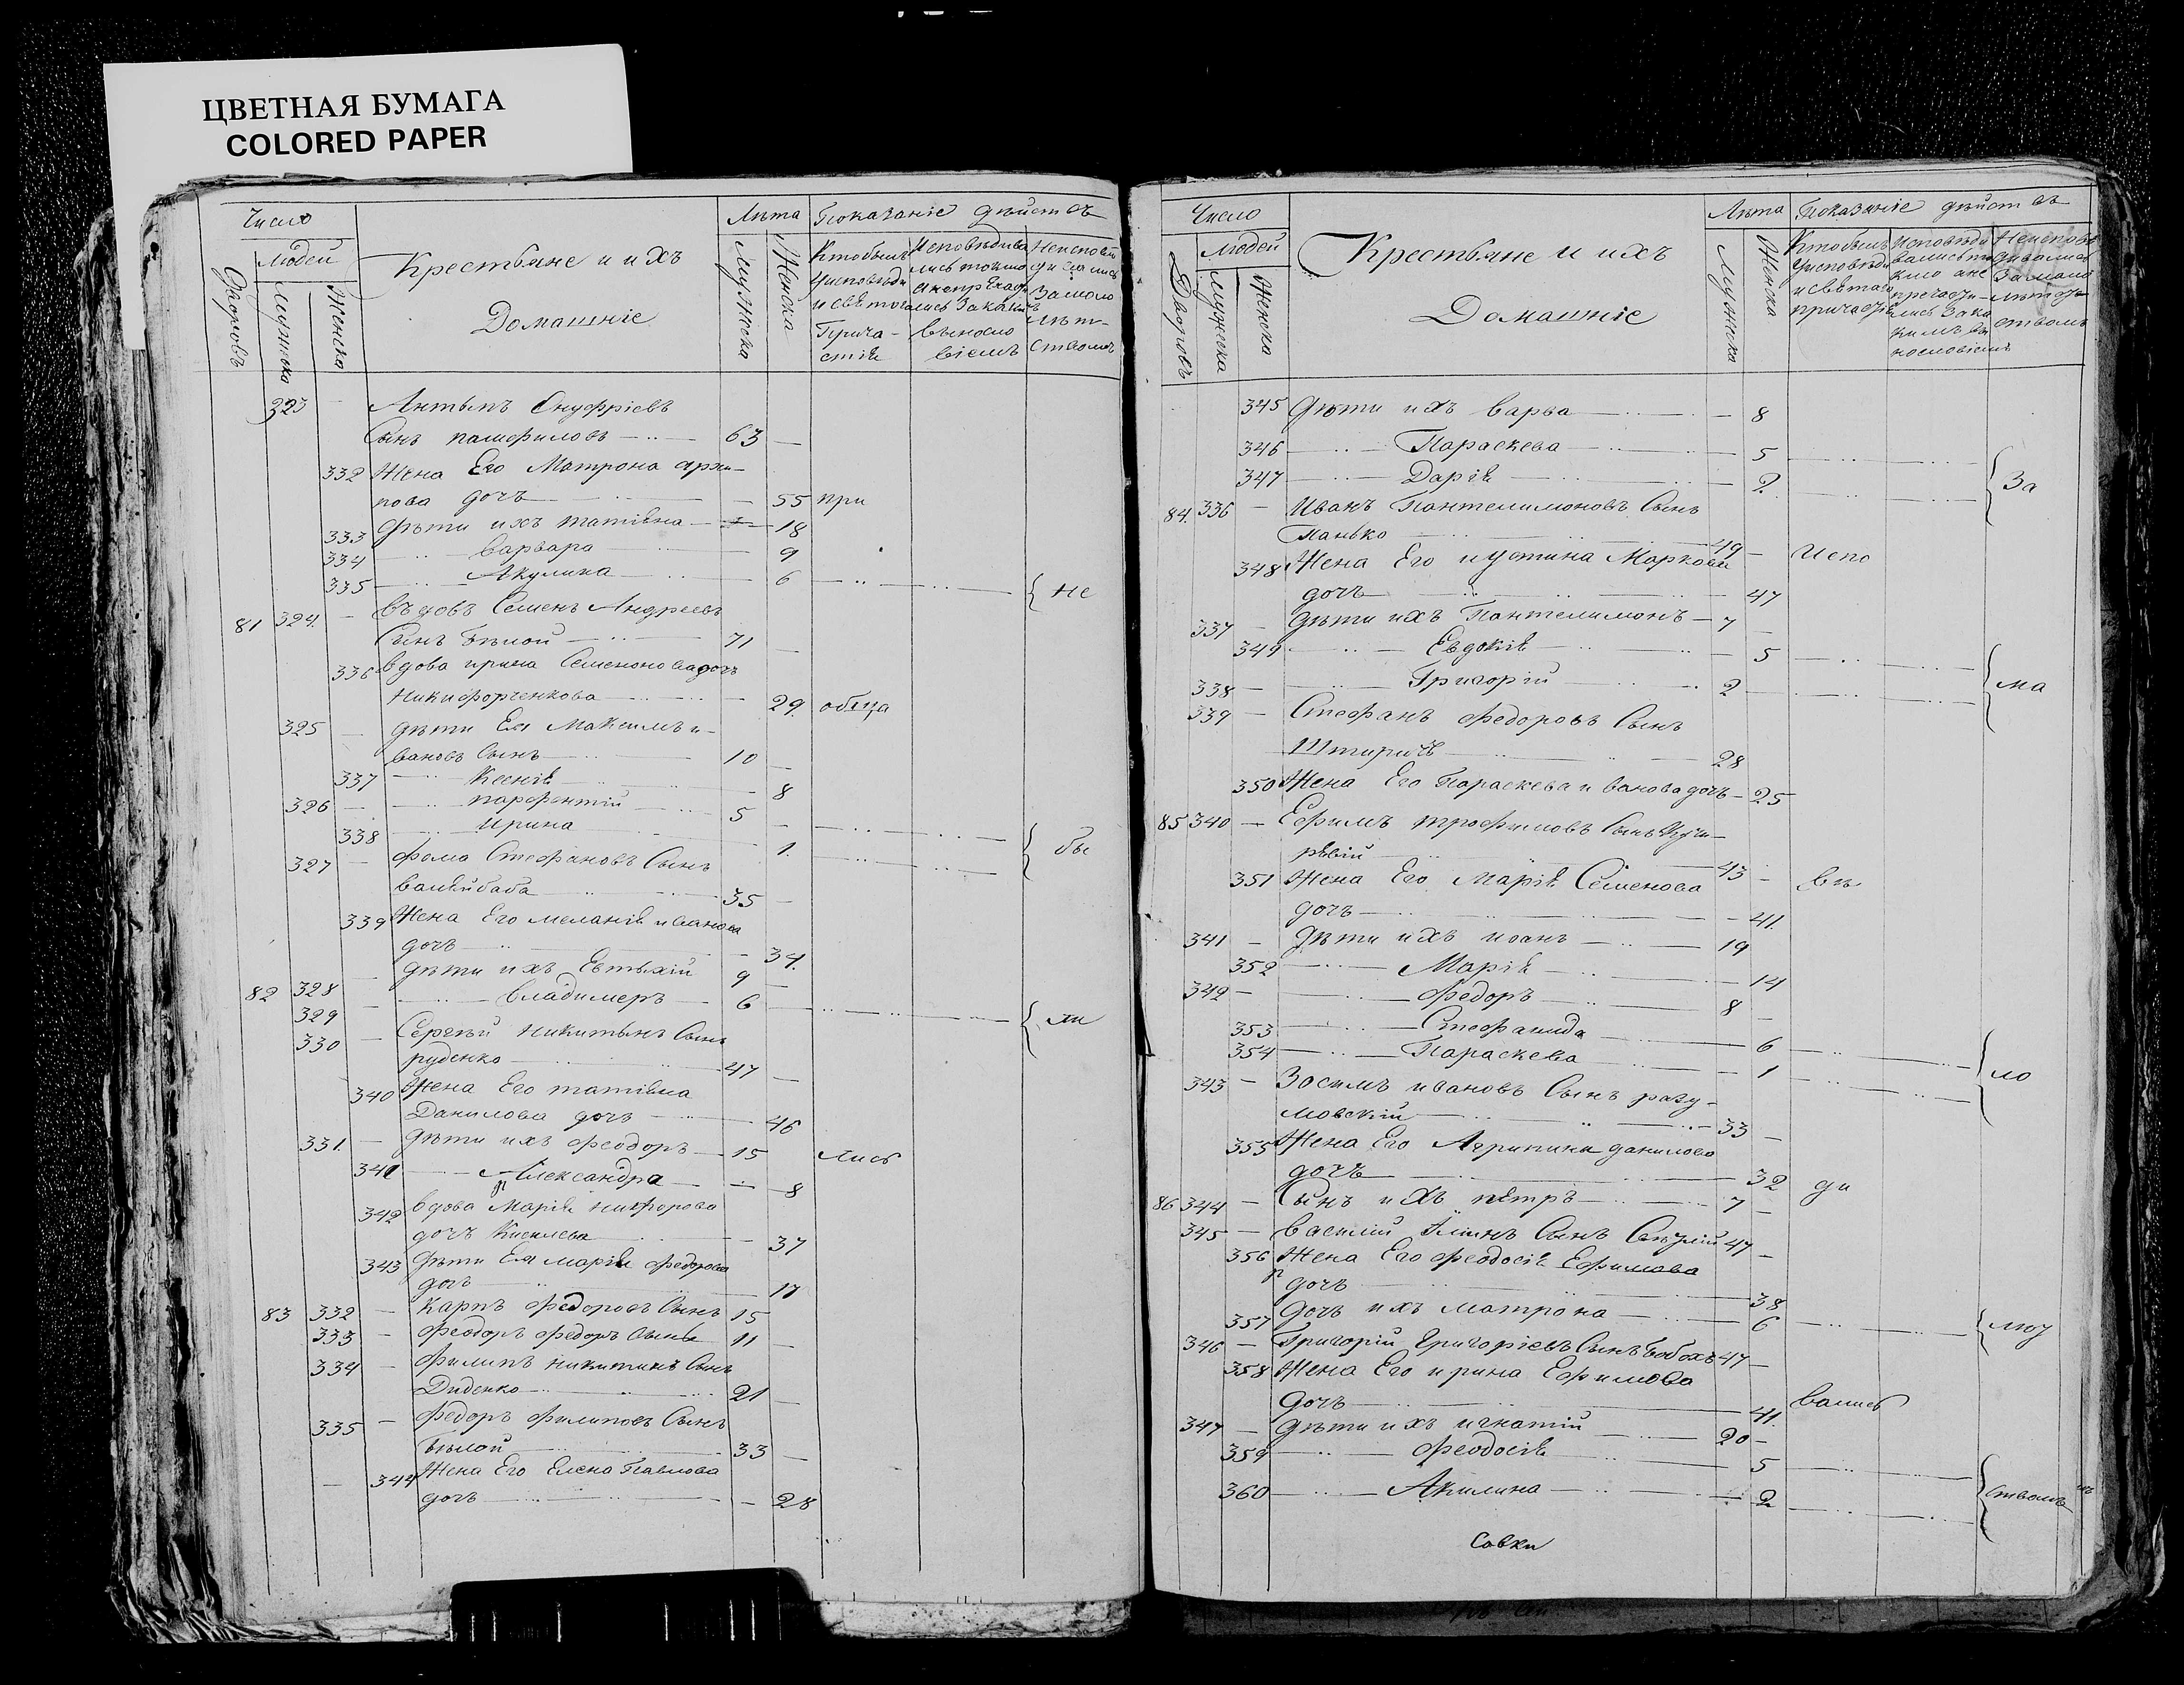 ЦВЕТНАЯ БУМАГА
COLORED PAPER
Число
Людей
Дворовъ
Мужеска
Женска
Крестьяне и ихъ
Домашніе
Лѣта
Мужеска
Женска
Показаніе дѣйствъ
323 Антыпъ Онуфріевъ
Сынъ памфиловъ 63
332 Жена Его Матрона архи-
пова дочъ 55 при
333 Дѣти ихъ татіана 18
334 Варвара 9
335 Акулина 6 не
81 324 Въдовъ Семенъ Андреевъ
Сынъ Бѣлой 71
336 Вдова ирина дочъ
Никифорченкова 29 обща
325 Дѣти Ея Максимъ и-
вановъ Сынъ 10
337 Ксенія 8
326 парфентій 5
338 Ирина 1 бы
327 Фома Стефановъ Сынъ
35
339 Жена Его меланія иванова
дочъ 34
82 328 Дѣти ихъ Евтыхій 9
329 Владимеръ 6 ли
330 Сергѣй Никитынъ Сынъ
руденко 47
340 Жена Его татіана
Данилова дочъ 46
331 Дѣти ихъ феодоръ 15 лись
341 Александра 8
342 Вдова Марія никифорова
дочъ Киселева 37
343 Дѣти Ея марія федорова
дочъ 17
83 332 Карпъ федоровъ Сынъ 15
333 Феодоръ федоръ Сынъ 11
334 Филипъ никитинъ Сынъ
Диденко 21
335 Федоръ филиповъ Сынъ
Бѣлой 33
344 Жена Его Елена Павлова
дочъ 28
Число
Людей
Дворовъ
Мужеска
Женска
Крестьяне и ихъ
Домашніе
Лѣта
Мужеска
Женска
Показаніе дѣйствъ
345 Дѣти ихъ варва 8
346 Параскева 5
347 Дарія 2 За
84 336 Иванъ Пантелимоновъ Сынъ
Панько 49 Испо
348 Жена Его иустина Маркова
дочъ 47
337 Дѣти ихъ Пантелимонъ 7
349 Евдокія 5
338 Григорій 2 ма
339 Стефанъ федоровъ Сынъ
28
350 Жена Его Параскева иванова дочъ 25
85 340 Ефимъ трофимовъ Сынъ
43
351 Жена Его Марія Семенова
дочъ 41
341 Дѣти ихъ иоанъ 19
352 Марія 14
342 Федоръ 8
353 Стефанида 6
354 Параскева 1 ло
343 Зосимъ ивановъ Сынъ разу-
мовскій 33
355 Жена Его Агрипина данилова
дочъ 32 ди
86 344 Сынъ ихъ пётръ 7
345 Василий Сынъ 47
356 Жена Его феодосія Ефимова
дочъ 38
357 Дочъ ихъ матрона 6
346 Григорій Григоріевъ Сынъ 47
358 Жена Его ирина Ефимова
дочъ 41 вались
347 Дѣти ихъ игнатій 20
359 Феодосія 5
360 Акилина 2 ствомъ
Совки